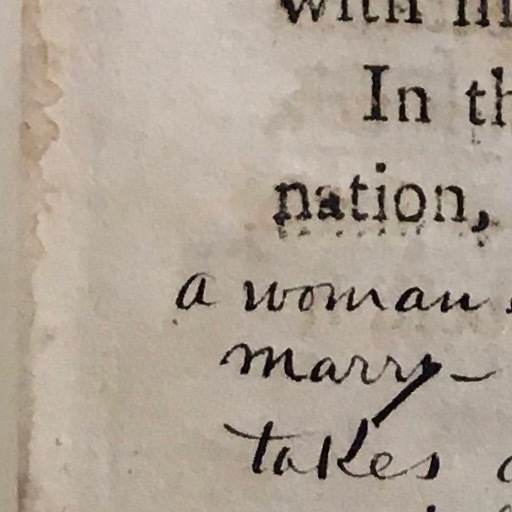 with
In
nation,
a woman
marry –
takes